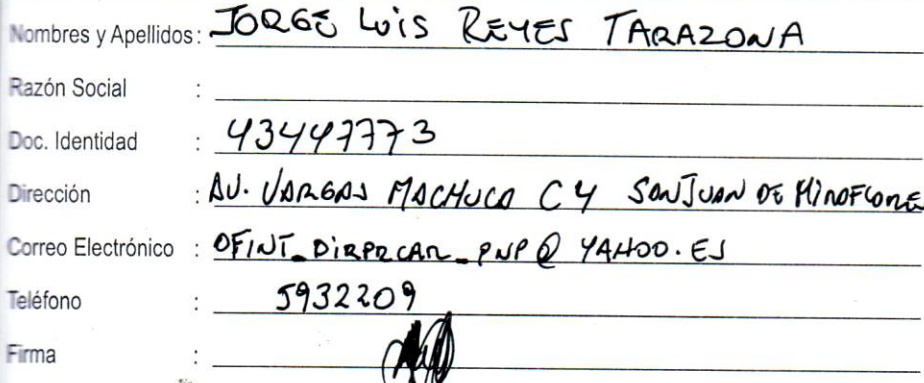 Nombres y Apellidos: JORGE LUIS REYES TARAZONA
Razón Social :
Doc. Identidad : 43447773
Dirección : AV. VARGAS MACHUCA C4 SAN JUAN DE MIRAFLORES
Correo Electrónico : OFINT_DIRPRCAR_PNP@YAHOO.ES
Teléfono : 5932209
Firma :